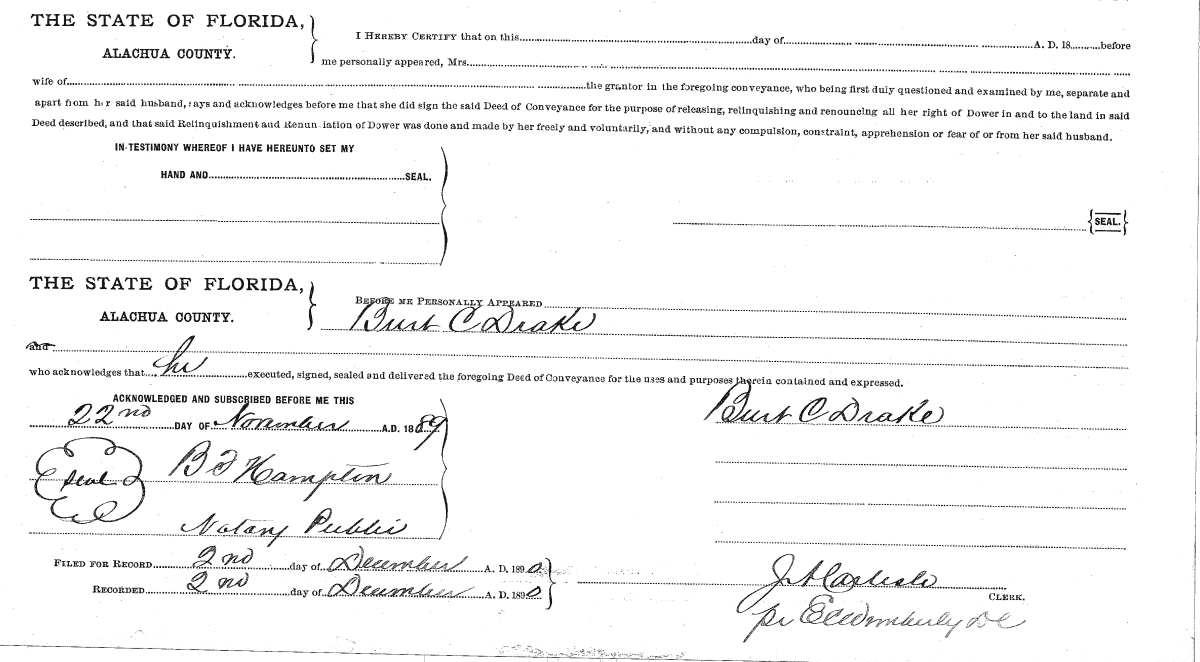 THE STATE OF FLORIDA,
ALACHUA COUNTY.
I HEREBY CERTIFY that on this..........day of.......... A. D. 18........before
me personally appeared, Mrs..........
wife of..........the grantor in the foregoing conveyance, who being first duly questioned and examined by me, separate and
apart from her said husband, says and acknowledges before me that she did sign the said Deed of Conveyance for the purpose of releasing, relinquishing and renouncing all her right of Dower in and to the land in said
Deed described, and that said Relinquishment and Renunciation of Dower was done and made by her freely and voluntarily, and without any compulsion, constraint, apprehension or fear of or from her said husband.
IN TESTIMONY WHEREOF I HAVE HEREUNTO SET MY
HAND AND..........SEAL.
SEAL.
THE STATE OF FLORIDA,
ALACHUA COUNTY.
BEFORE ME PERSONALLY APPEARED
Burt C Drake
and
who acknowledges that....he..........executed, signed, sealed and delivered the foregoing Deed of Conveyance for the uses and purposes therein contained and expressed.
ACKNOWLEDGED AND SUBSCRIBED BEFORE ME THIS
22nd DAY OF November A.D. 1889
Burt C Drake
Seal B F Hampton
Notary Public
FILED FOR RECORD 2nd day of December A. D. 1890
RECORDED 2nd day of December A. D. 1890
J A Carlisle
CLERK.
pr E C Wimberly DC